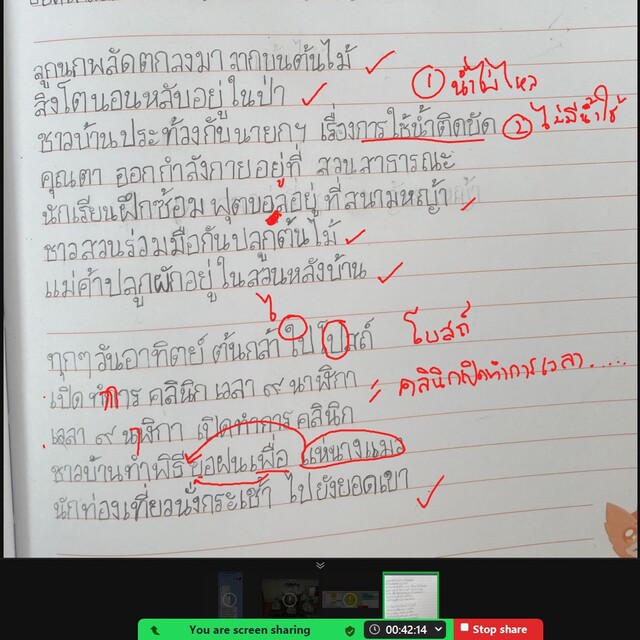 ลูกนกพลัดตกลงมา จากบนต้นไม้
สิงโตนอนหลับอยู่ในป่า
① น้ำไม่ไหล
ชาวบ้านประท้วงกับนายกฯ เรื่องการใช้น้ำติดขัด
② ไม่มีน้ำใช้
คุณตา ออกกำลังกายอยู่ที่ สวนสาธารณะ
นักเรียนฝึกซ้อม ฟุตบอลอยู่ ที่สนามหญ้า
ชาวสวนร่วมมือกันปลูกต้นไม้
แม่ค้าปลูกผักอยู่ในสวนหลังบ้าน
ไ
ทุกๆวันอาทิตย์ ต้นกล้า ใป โปสถ์
โบสถ์
เปิดทำการ คลินิก เวลา ๙ นาฬิกา
คลินิกเปิดทำการเวลา.....
เวลา ๙ นาฬิกา เปิดทำการ คลินิก
ชาวบ้านทำพิธี ขอฝนเพื่อ แห่นางแมว
นักท่องเที่ยวนั่งกระเช้า ไปยังยอดเขา
You are screen sharing
00:42:14
Stop share